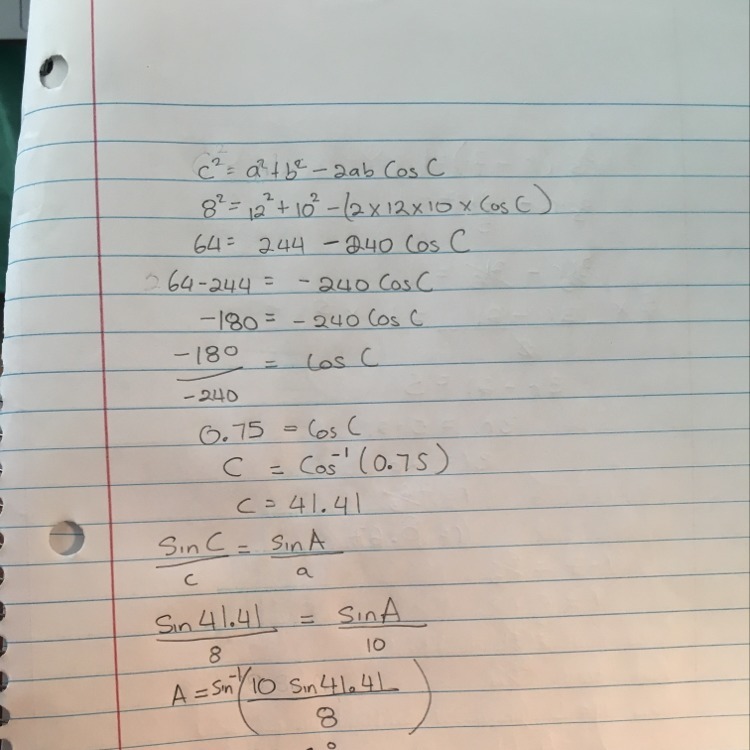 c² = a² + b² - 2ab Cos C
8² = 12² + 10² - (2 × 12 × 10 × Cos C)
64 = 244 - 240 Cos C
64 - 244 = - 240 Cos C
-180 = - 240 Cos C
-180 / -240 = Cos C
0.75 = Cos C
C = Cos⁻¹ (0.75)
C = 41.41
Sin C / c = Sin A / a
Sin 41.41 / 8 = Sin A / 10
A = Sin⁻¹ (10 Sin 41.41 / 8)